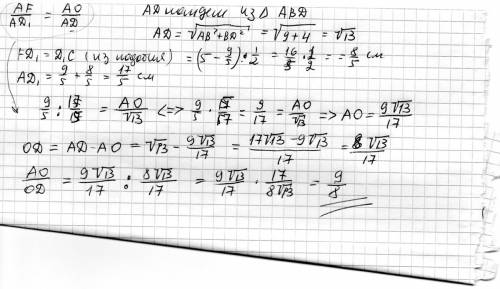 AF/AD₁ = AO/AD
AD найдем из Δ ABD
AD = √(AB² + BD²) = √(9+4) = √13
FD₁ = D₁C (из подобия) = (5 - 9/5) · 1/2 = 16/5 · 1/2 = 8/5 см
AD₁ = 9/5 + 8/5 = 17/5 см
9/5 : 17/5 = AO/√13 <=> 9/5 · 5/17 = 9/17 = AO/√13 => AO = 9√13/17
OD = AD - AO = √13 - 9√13/17 = (17√13 - 9√13)/17 = 8√13/17
AO/OD = 9√13/17 : 8√13/17 = 9√13/17 · 17/8√13 = 9/8